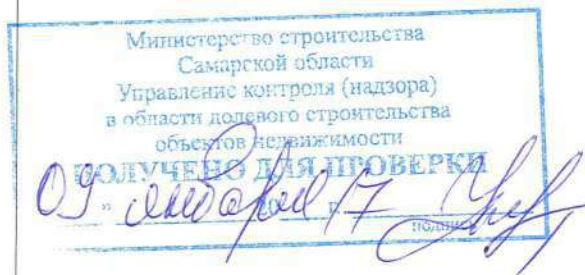 Министерство строительства
Самарской области
Управление контроля (надзора)
в области долевого строительства
объектов недвижимости
ПОЛУЧЕНО ДЛЯ ПРОВЕРКИ
09 января 17